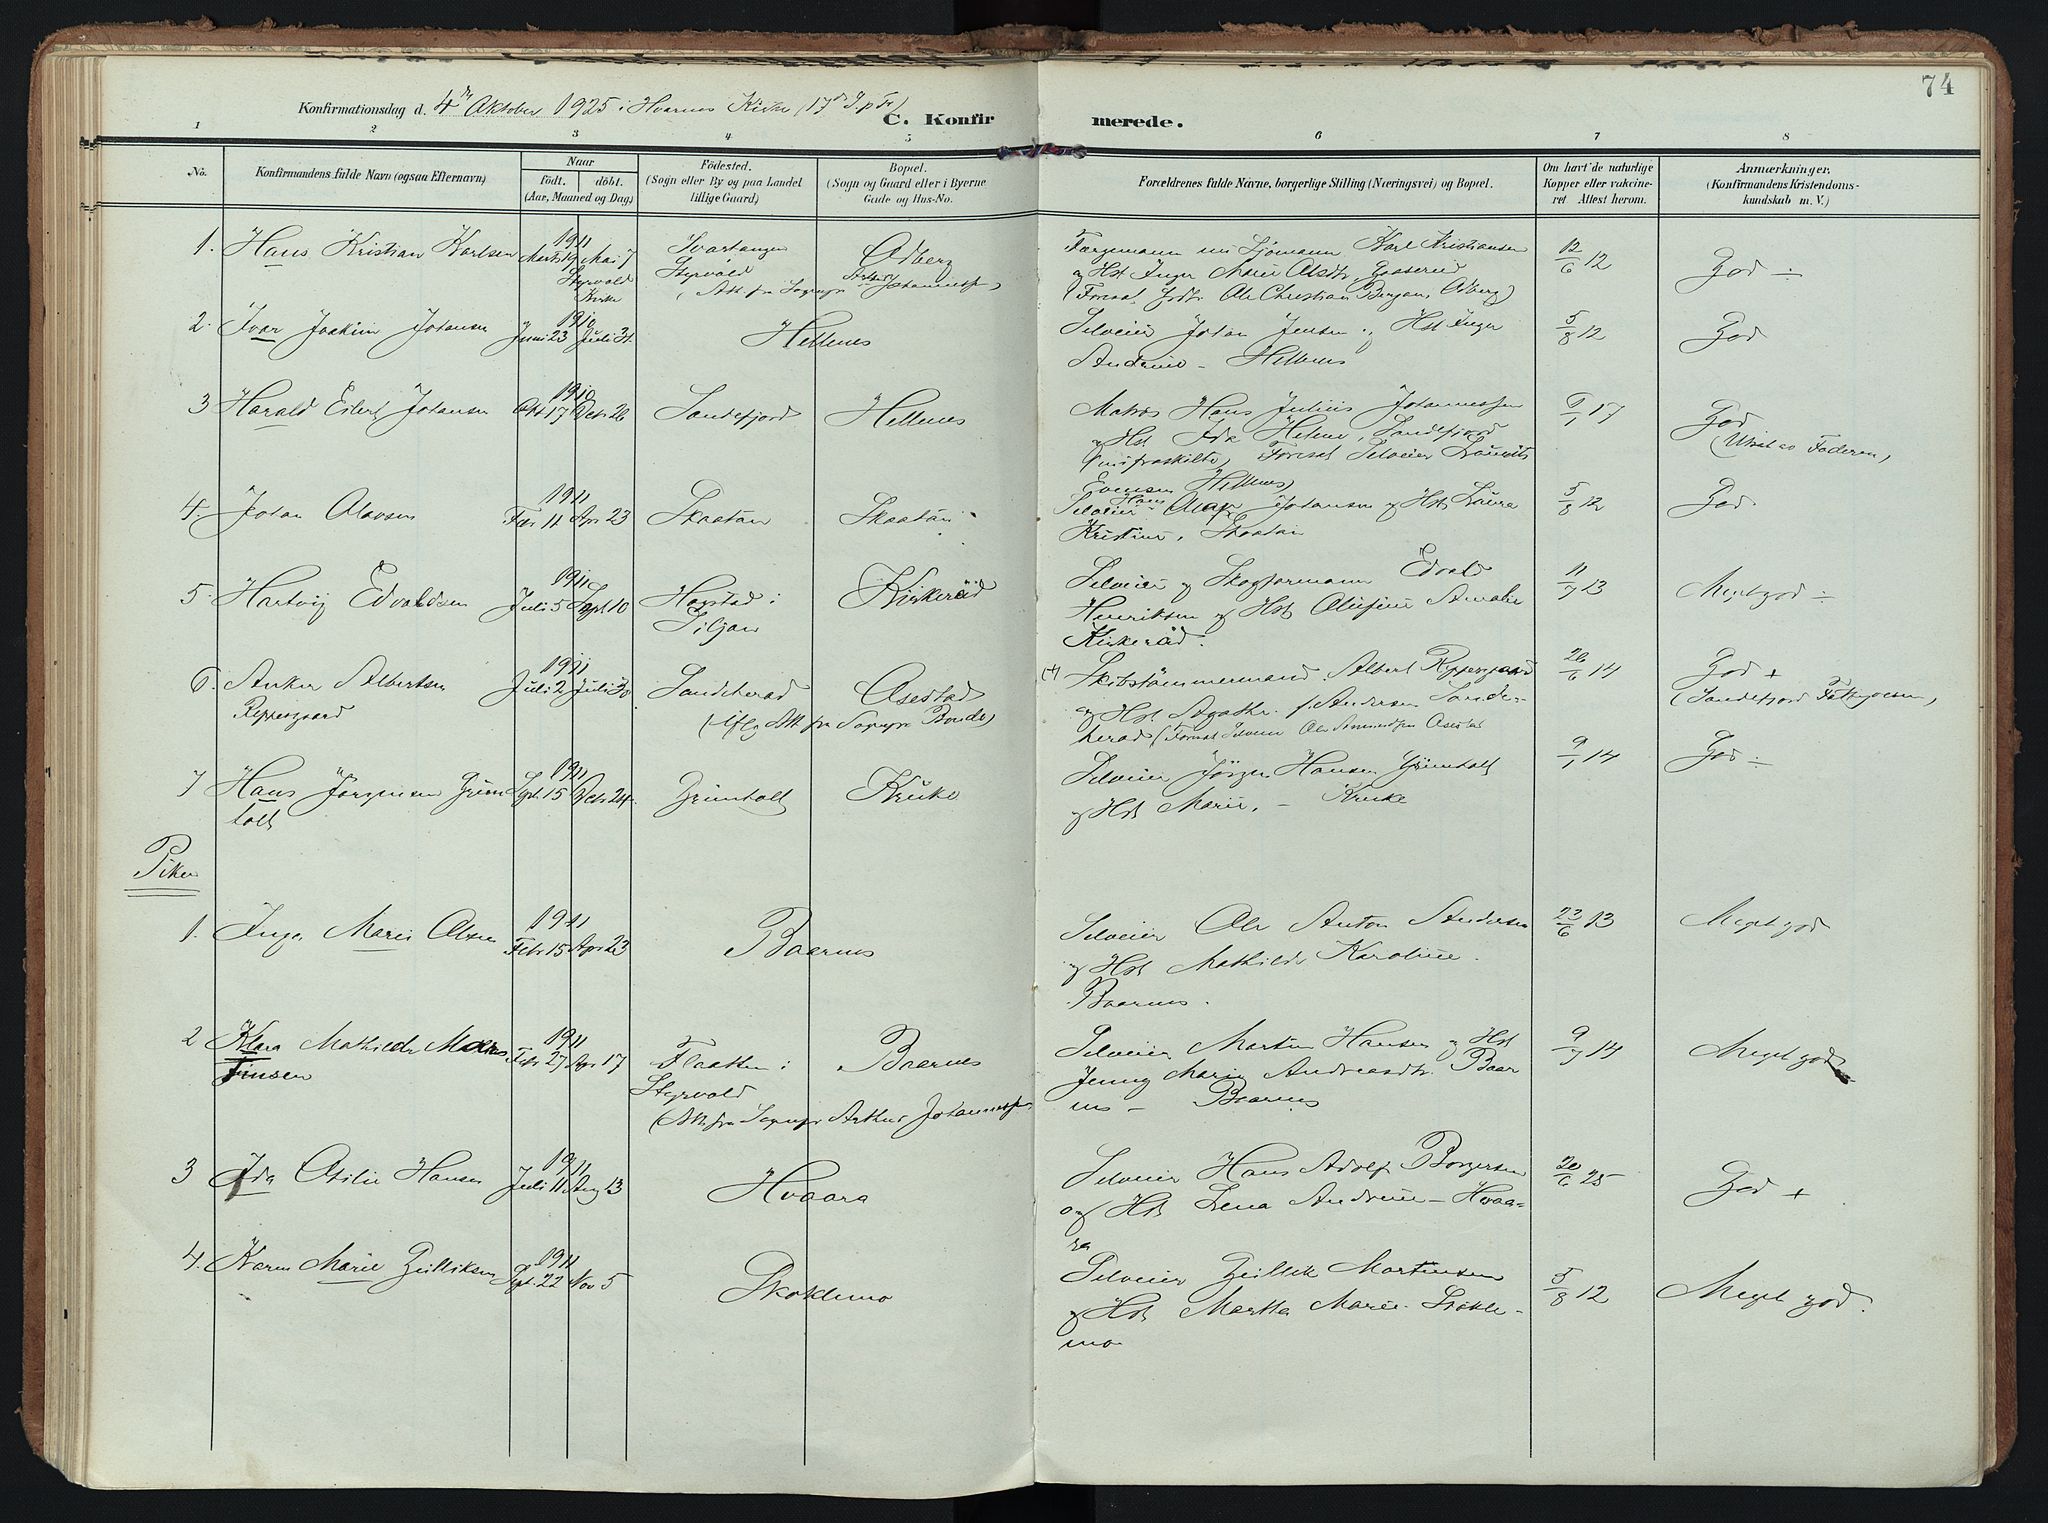 74
Konfirmationsdag d. 4de Oktober 1925 i Hvarnes Kirke (17de S. p. Tr.)
C. Konfirmerede.
1 2 3 4 5 6 7 8
No.
Konfirmandens fulde Navn (ogsaa Efternavn)
Naar
födt. döbt.
(Aar, Maaned og Dag)
Födested.
(Sogn eller By og paa Landet
tillige Gaard)
Bopæl.
(Sogn og Gaard eller i Byerne
Gade og Hus-No.
Forældrenes fulde Navne, borgerlige Stilling (Næringsvei) og Bopæl.
Om havt de naturlige
Kopper eller vakcine-
ret Attest herom.
Anmærkninger.
(Konfirmandens Kristendoms-
kundskab m. V.)
1. Hans Kristian Karlsen
1911
Marts 19 Mai 7
Styrvold
Kirke
Svartangen
Styrvold
Odberg
(Att. fra Sogepr. Arthur Johannessen)
Sjömann Karl Kristiansen
og Hst Inger Marie Olsdtr.
(Foresat Ole Christian Bergan, Odberg)
12/6 12
God ÷
2. Ivar Joakim Johansen
1910
Juni 23 Juli 31
Hellenes
Selveier Johan Jensen og Hst Inger
Andrine - Hellenes
5/8 12
God
3 Harald Eilert Johansen
1910
Okt. 17 Dcb 26
Sandefjord
Hellenes
Matros Hans Julius Johannessen
og Hst Ida Helene, Sandefjord
Foresat Selveier Laurits
Evensen Hellenes)
9/1 17
God
(Utsat av Faderen)
4. Johan Olavsen
1911
Feb 11 Apr 23
Skaatan
Skaatan
Selveier Hans Olaf Johansen og Hst Laura
Kristine, Skaatan
5/8 12
God.
5. Hartvig Edvaldsen
1911
Juli 5 Sept 10
Hogstad i
Siljan
Kirkeråd
Selveier og Edvald
Henriksen og Hst Olufine Amalie
Kirkeråd.
11/7 13
Meget god ÷
6. Anker Albertsen
Reppesgaard
1911
Juli 2 Juli 30
Sandeherad
Osestad
(iflg Att. fra Sogepr Bonde)
(+) Skibstömmermand Albert Reppesgaard
og Hst Agathe f. Andersen Sande-
herad (Foresat Selveier Ole Amundsen Osestad
26/6 14
God +
(Sandefjord
7 Hans Jörgensen Grim
holt
1911
Sept. 15 Dcb 24
Grimholt
Kruke
Selveier Jörgen Hansen Grimholt
og Hst Marie, - Kruke
9/1 14
God ÷
Piker
1. Inga Marie Olsen
1911
Febr. 15 Apr 23
Baarnes
Selveier Ole Anton Andersen
og Hst Mathilde Karoline.
Baarnes.
23/6 13
Meget god
2 Klara Mathilde
Tinsen
1911
Feb. 27 Apr 17
Flaatten i
Styrvold
Baarnes
(Att fra Sogepr Arthur Johannessen
Selveier Martin Hansen og Hst
Jenny Marie Andreasdtr. Baar
nes - Baarnes
9/7 14
Meget god
3 Ida Otilie Hansen
1911
Juli 11 Aug 13
Hvaara
Selveier Hans Adolf Borgersen
og Hst Lena Andrine - Hvaa-
ra
20/6 25
God +
4. Karen Marie Gulliksen
1911
Sept. 22 Nov 5
Skoklemo
Selveier Gullik Martinsen
og Hst Martha Marie. Skokle-
mo
5/8 12
Meget god.